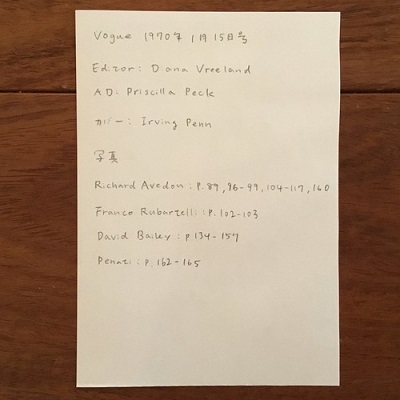 Vogue 1970年 1月15日号
Editor: Diana Vreeland
AD: Priscilla Peck
カバー: Irving Penn
写真
Richard Avedon: P.89, 96-99, 104-117, 160
Franco Rubartelli: P.102-103
David Bailey: P134-157
Penati: P.162-165